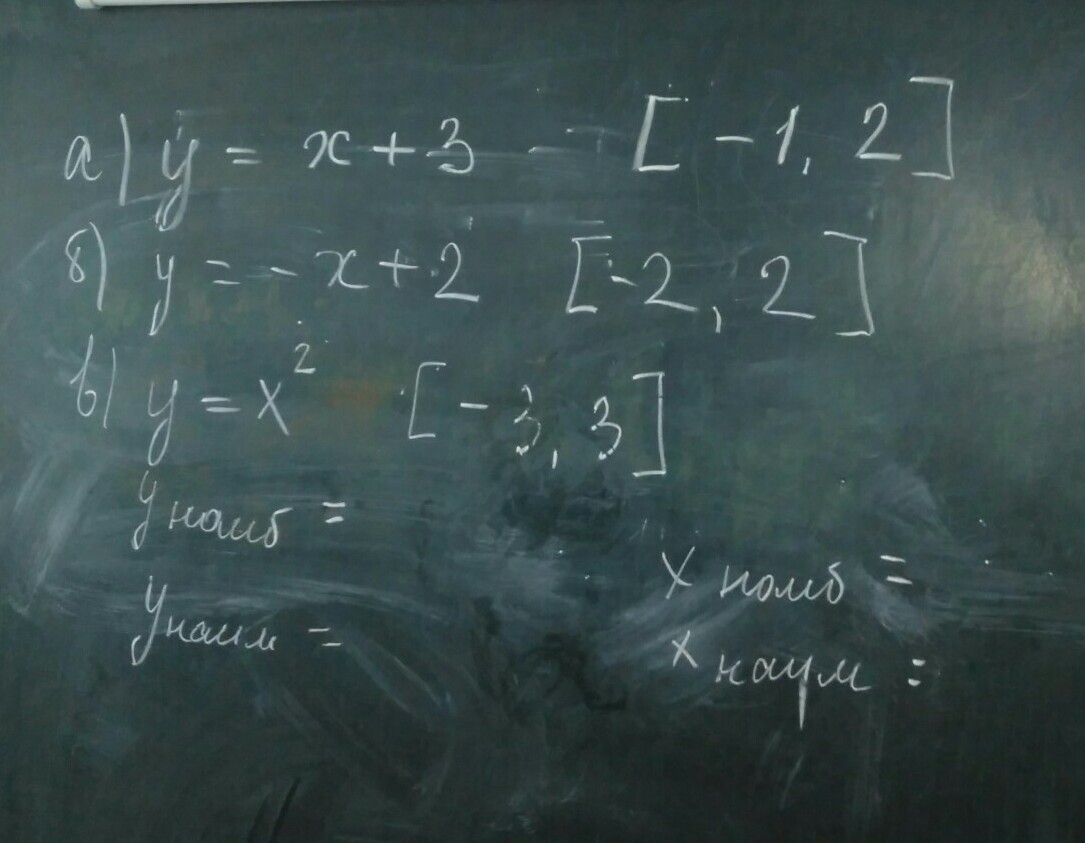 а) y = x + 3 - [-1, 2]
б) y = -x + 2 [-2, 2]
в) y = x² [-3, 3]
y наиб =
x наиб =
y наим =
x наим =